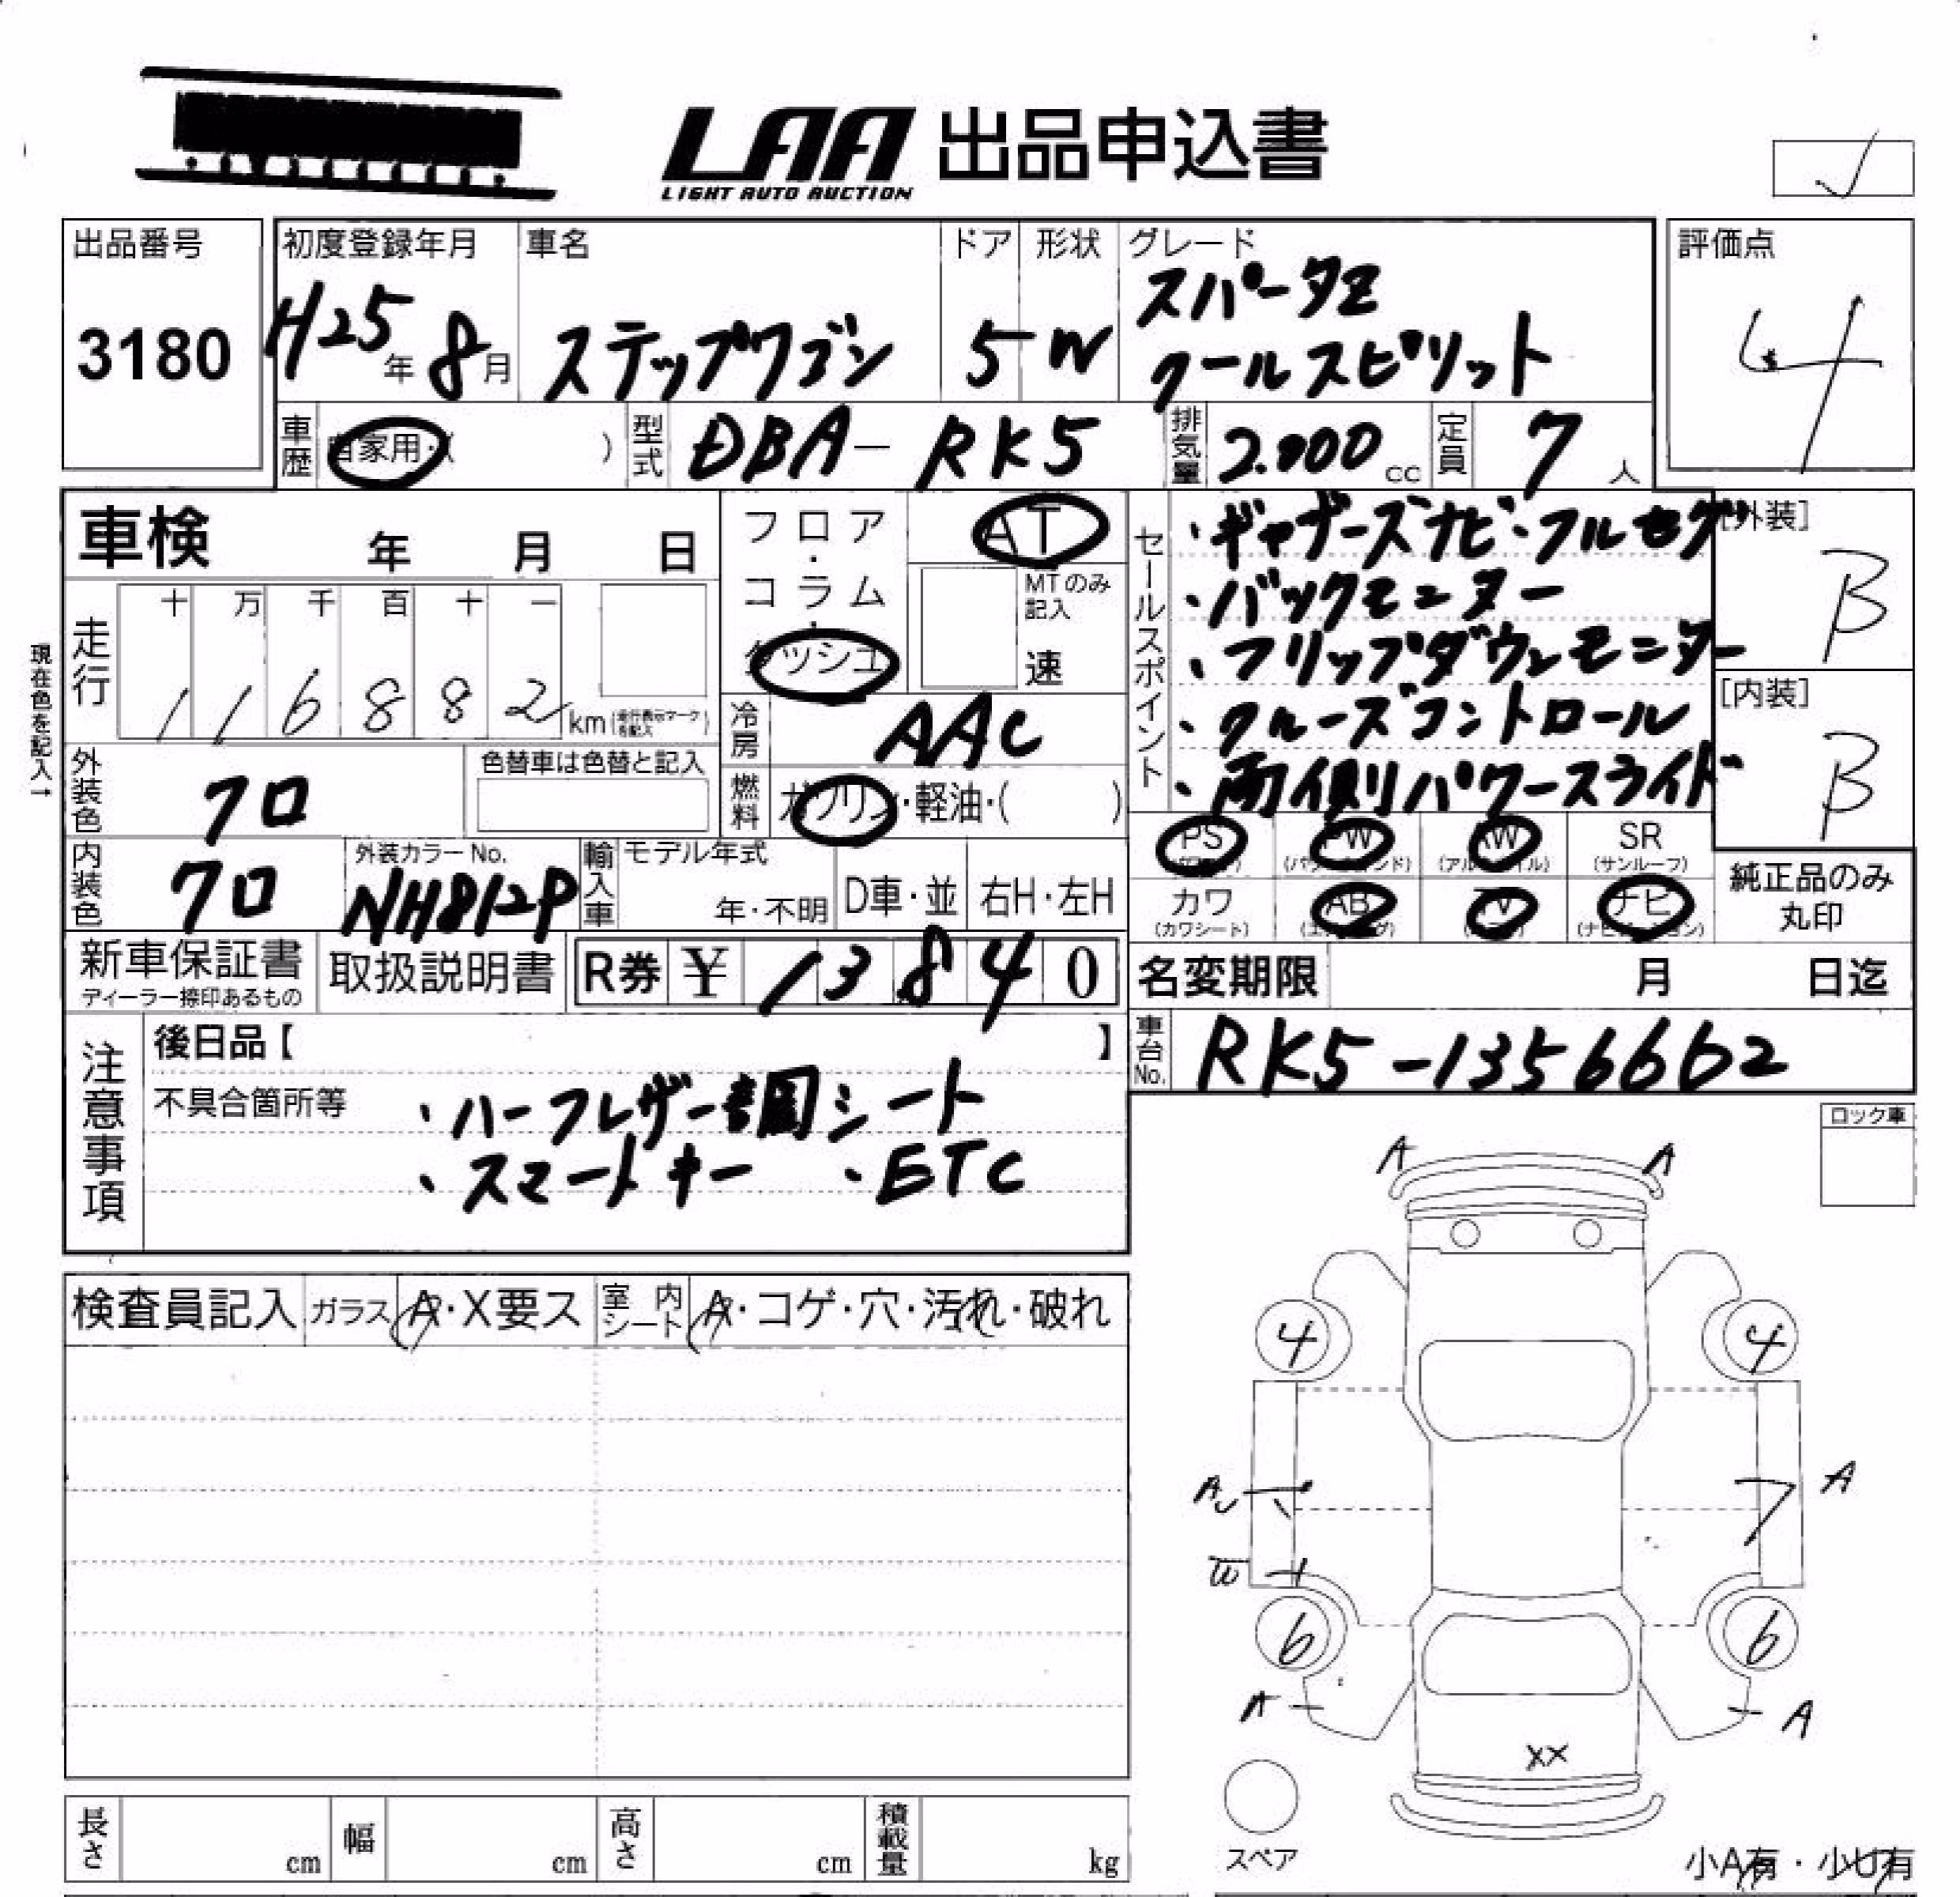 LAA 出品申込書
LIGHT AUTO AUCTION
出品番号
3180
初度登録年月
H25年 8月
車名
ステップワゴン
ドア
5
形状
W
グレード
スパーダZ
クールスピリット
評価点
4
車歴
自家用・( )
型式
DBA-RK5
排気量
2.000 cc
定員
7人
車検 年 月 日
フロア・コラム・ダッシュ
AT
MTのみ記入
速
セールスポイント
・ギャザーズナビ・フルセグ
・バックモニター
・フリップダウンモニター
・クルーズコントロール
・両側パワースライド
[外装]
B
[内装]
B
現在色を記入→
走行
十 万 千 百 十 一
1 1 6 8 8 2 km (走行表示マークを記入)
冷房
AAC
外装色
クロ
色替車は色替と記入
燃料
ガソリン・軽油・( )
内装色
クロ
外装カラーNo.
NH812P
輸入車
モデル年式
年・不明
D車・並
右H・左H
PS
(パワステ)
PW
(パワーウインド)
AW
(アルミホイル)
SR
(サンルーフ)
カワ
(カワシート)
AB
(エアバッグ)
TV
(テレビ)
ナビ
(ナビゲーション)
純正品のみ
丸印
新車保証書
ディーラー捺印あるもの
取扱説明書
R券 ¥ 13840
名変期限 月 日迄
車台No.
RK5-1356662
注意事項
後日品【 】
不具合箇所等
・ハーフレザー調シート
・スマートキー ・ETC
ロック車
検査員記入
ガラス
A・X要ス
室内シート
A・コゲ・穴・汚れ・破れ
A A
4 4
A
A
W
6 6
A A
XX
スペア
小A有・小U有
長さ cm
幅 cm
高さ cm
積載量 kg